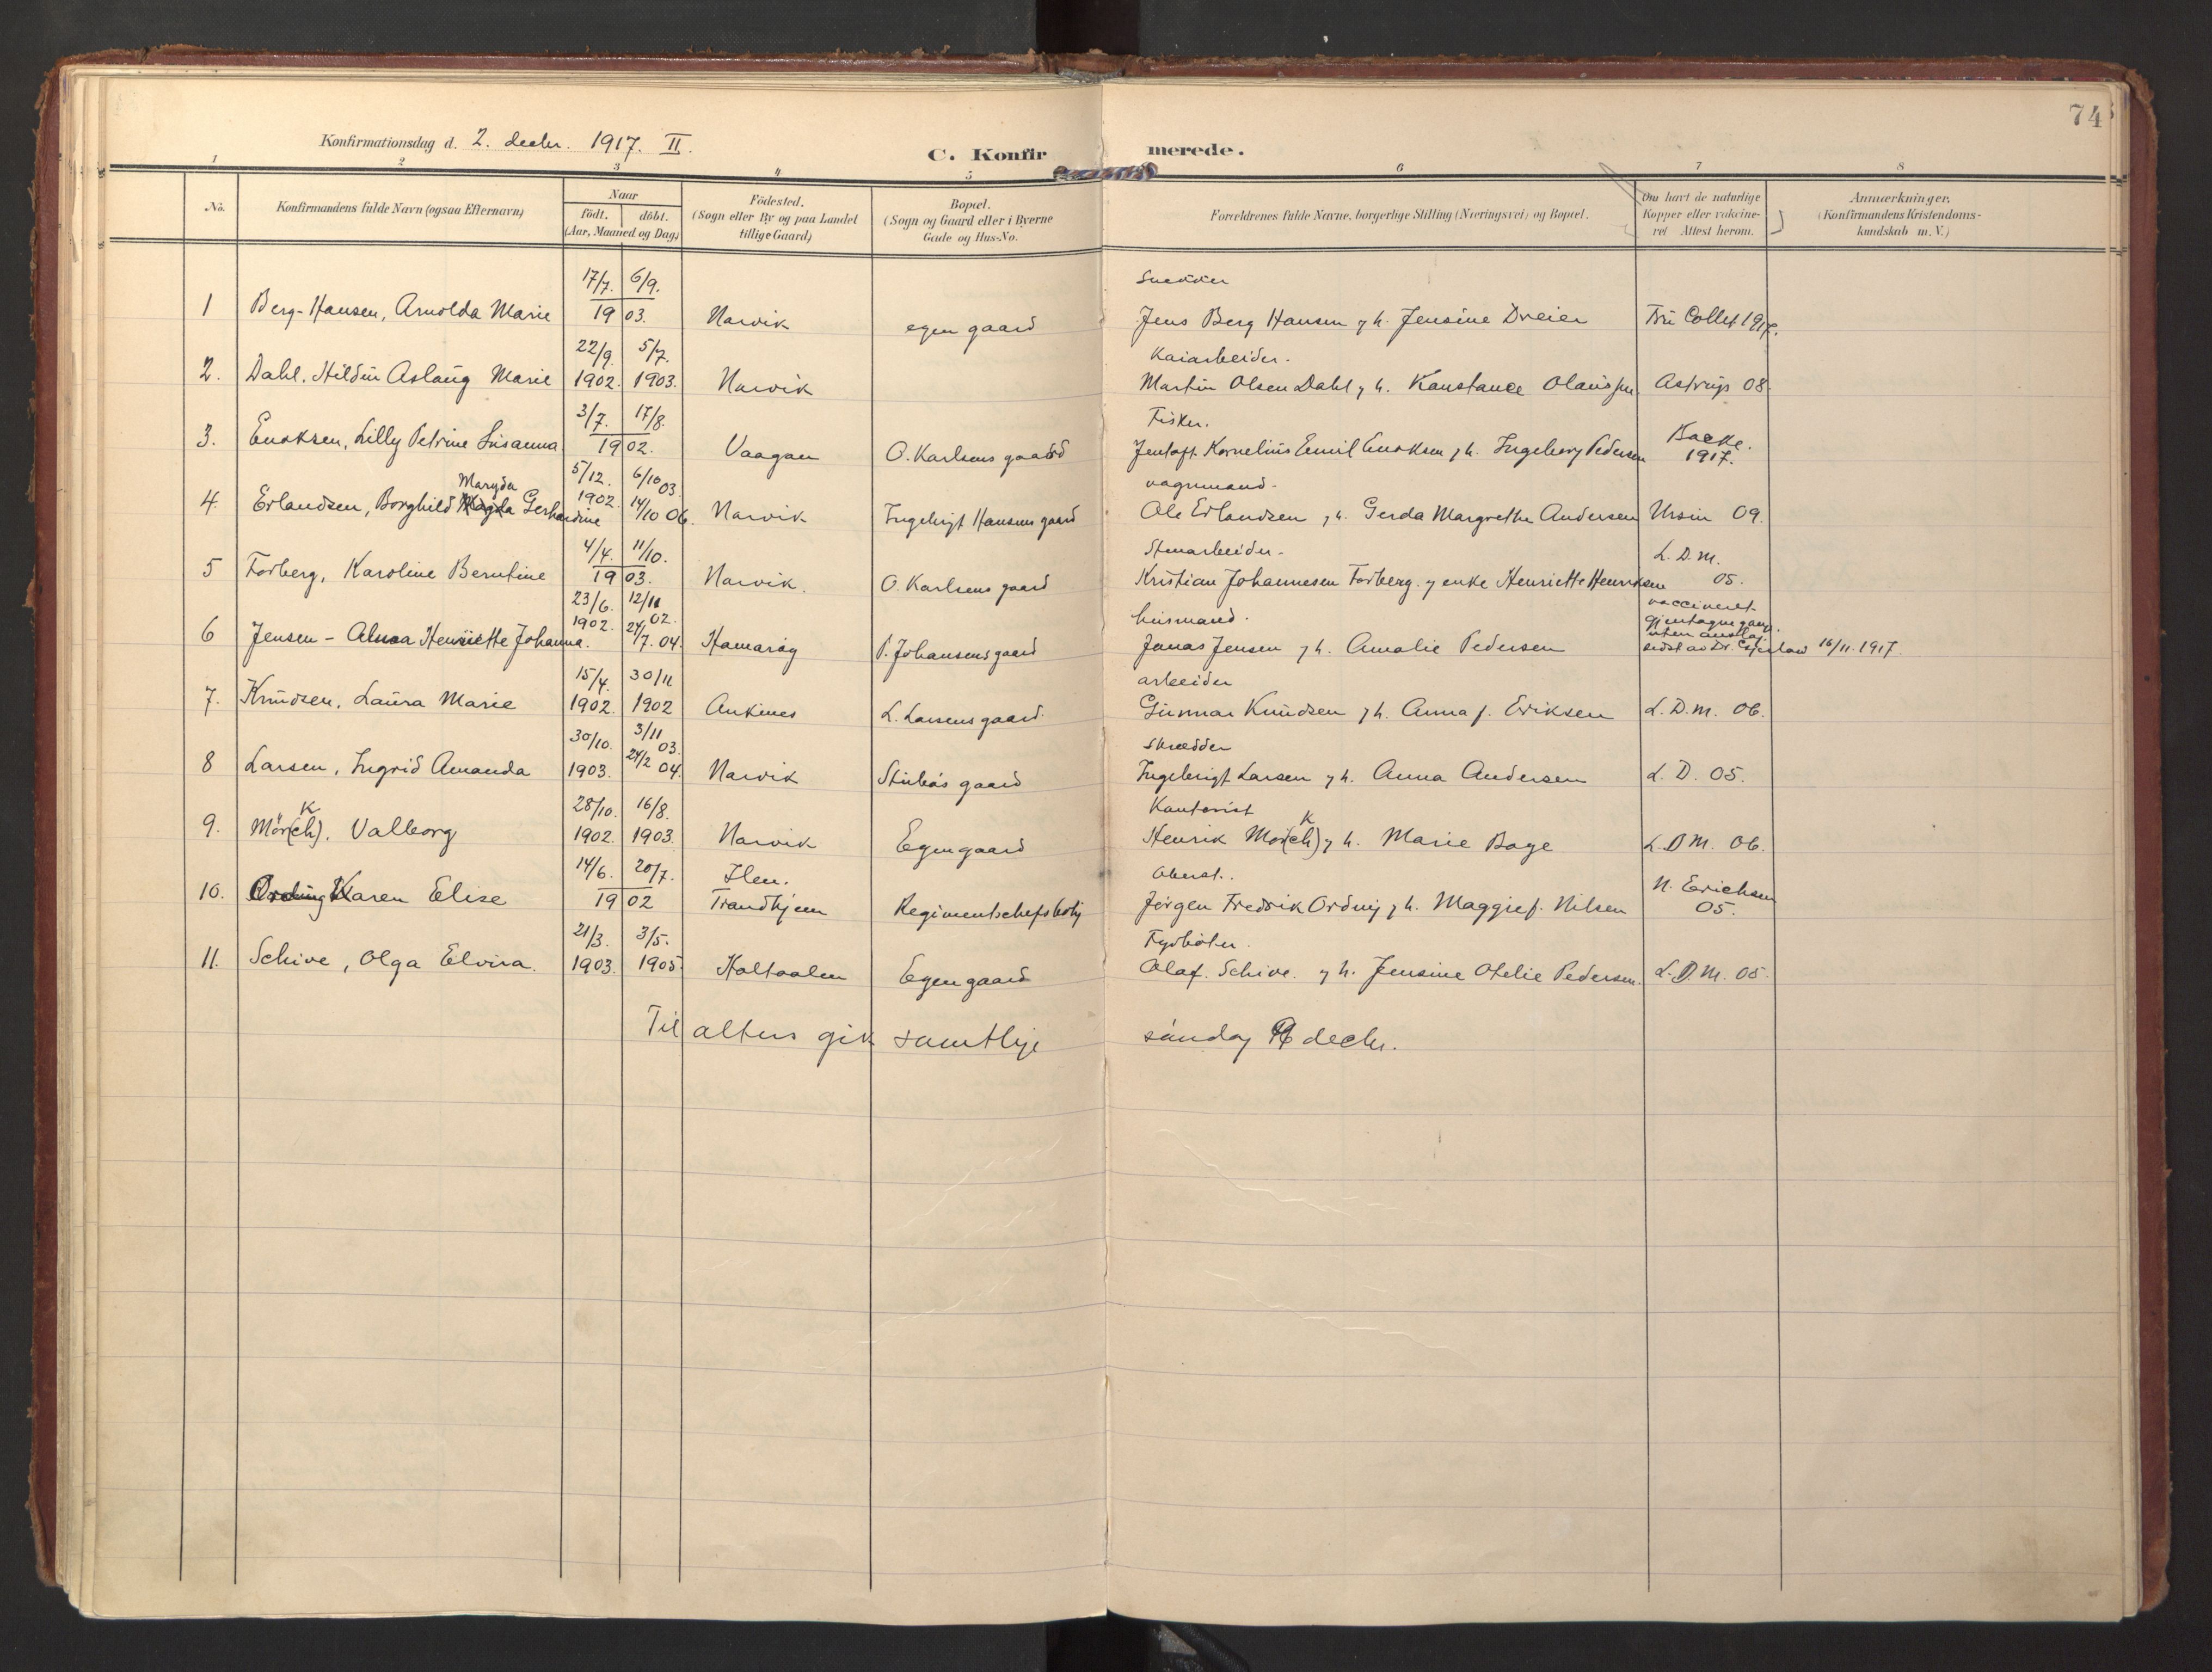 74
Konfirmationsdag d. 2. decbr. 1917. II.
C. Konfirmerede.
1 2 3 4 5 6 7 8
No. Konfirmandens fulde Navn (ogsaa Efternavn) Naar födt. döbt. (Aar, Maaned og Dag) Födested. (Sogn eller By og paa Landet tillige Gaard) Bopæl. (Sogn og Gaard eller i Byerne Gade og Hus-No. Forældrenes fulde Navne, borgerlige Stilling (Næringsvei) og Bopæl. Om havt de naturlige Kopper eller vakcineret Attest herom. Anmærkninger. (Konfirmandens Kristendomskundskab m. V.)
17/7. 6/9.
1 Berg-Hansen, Arnolda Marie 1903. Narvik egen gaard Jens Berg Hansen y h. Jensine Dreier Collet 1917.
22/9. 5/7. Kaiarbeider.
2. Dahl, Aslaug Marie 1902. 1903. Narvik Martin Olsen Dahl y h. Konstance Astrup 08.
3/7. 17/8. Fisker.
3. Enoksen, Lilly Petrine Susanna 1902. Vaagan O. Karlsens gaard Jentoft Kornelius Emil Enoksen y h. Ingeborg Pedersen Backe. 1917.
5/12. 6/10 03 vognmand.
4. Erlandsen, Borghild Magda Gerhardine 1902. 14/10 06. Narvik Ingebrigt Hansens gaard Ole Erlandsen y h. Gerda Margrethe Andersen Ursin 09.
4/4. 11/10. Stenarbeider. L. D. M.
5 Forberg, Karoline Berntine 1903. Narvik. O. Karlsens gaard Kristian Johannesen Forberg. y enke Henriette Henriksen 05.
23/6. 12/11 02. husmand. vaccineret gjentagne gang. uten anslag.
6 Jensen - Alma Henriette Johanna. 1902. 24/7. 04. Hamarøy P. Johansens gaard Jonas Jensen y h. Amalie Pedersen sidst av Dr. 16/11. 1917.
15/4. 30/11 arbeider
7. Knudsen, Laura Marie 1902. 1902 Ankenes L. Larsens gaard. Gunnar Knudsen y h. Anna f. Eriksen L. D. M. 06.
30/10. 3/11 03. skrædder
8 Larsen, Ingrid Amanda 1903. 24/2 04. Narvik Stubøs gaard Ingebrigt Larsen y h. Anna Andersen L. D. 05.
K 28/10. 16/8. Kontorist
9. Mör(ch). Valborg 1902. 1903. Narvik Egen gaard Henrik Mör(ch) K y h. Marie Bage L. D M. 06.
14/6. 20/7. Ilen. Oberst.
10. Ording Karen Elise 1902 Trondhjem Regimentschefsbolig Jörgen Fredrik Ording y h. Maggie f. Nilsen N. Erichsen 05.
21/3. 3/5. Fyrbøter.
11. Schive, Olga Elvira. 1903. 1905 Holtaalen Egen gaard Olaf. Schive. y h. Jensine Otelie Pedersen. L. D. M. 05.
Til alters gik samtlige søndag decbr.